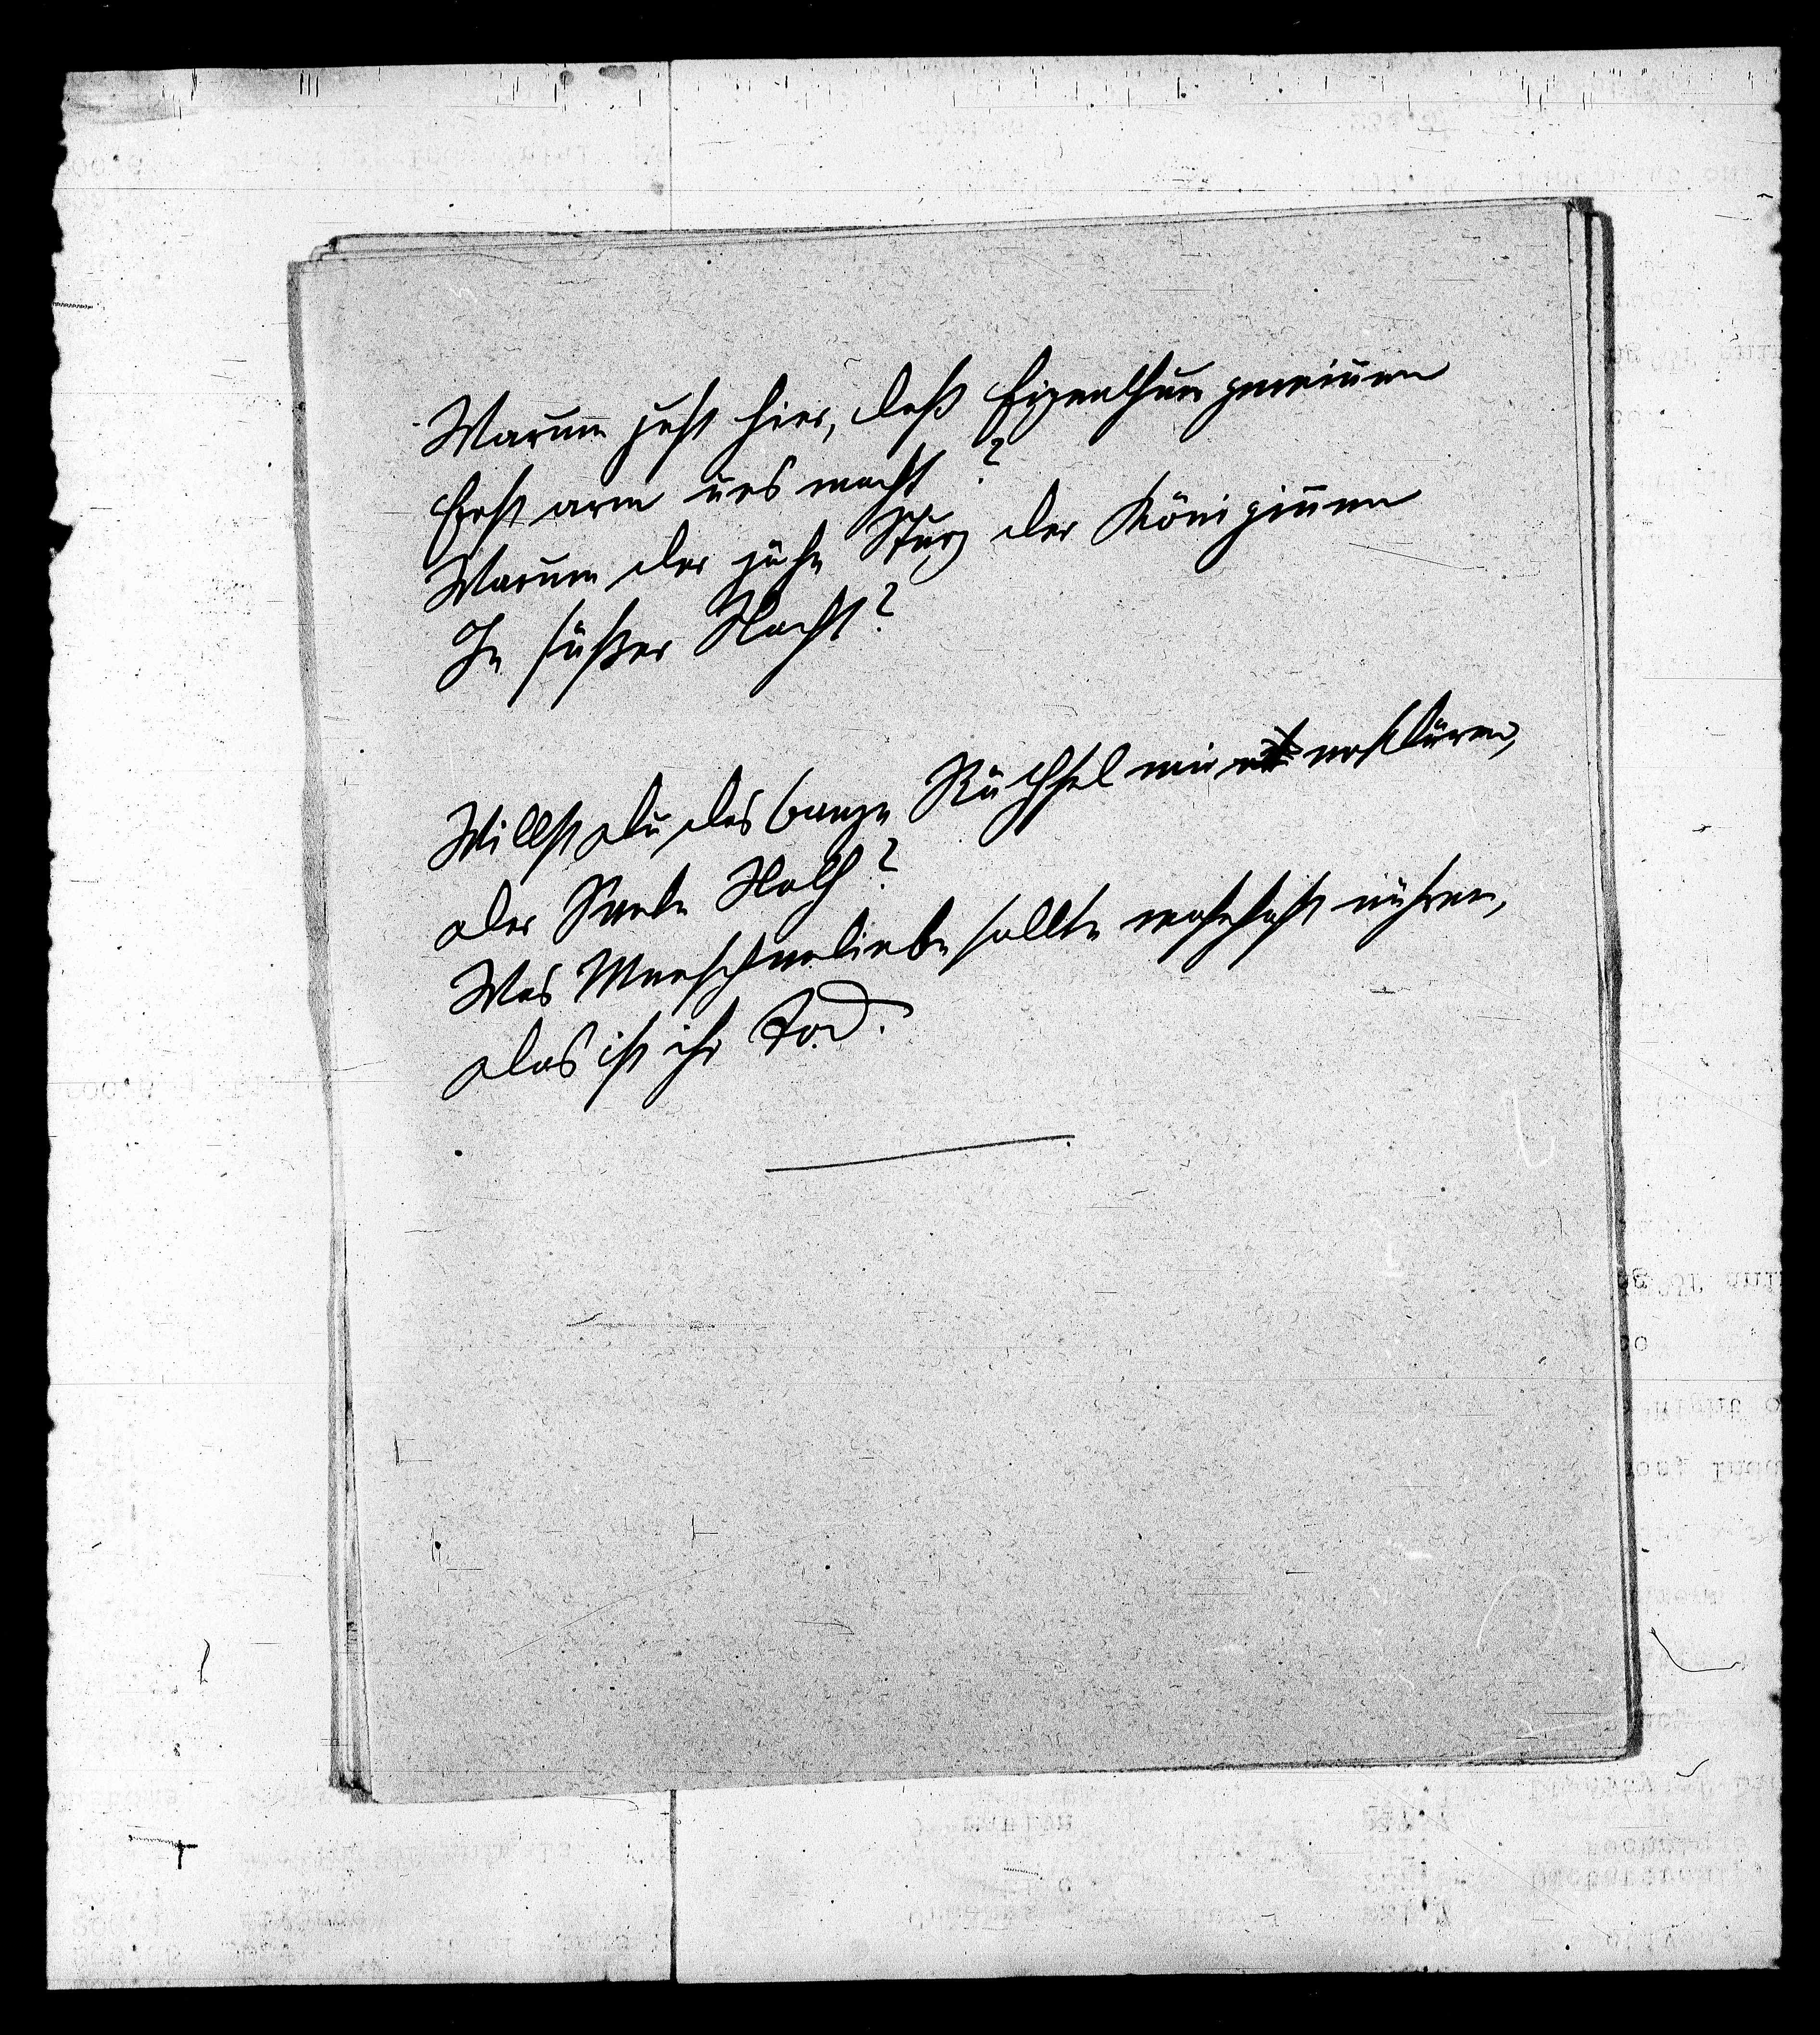 Warum just hier, daß Eigenthum gewinnen
Erst arm uns macht?
Warum der jähe Sturz der Königinnen
In süßer Nacht?
Willst du das bange Räthsel mir erklären,
der Seele Noth?
Was Menschenliebe sollte wahrhaft nähren,
das ist ihr Tod.